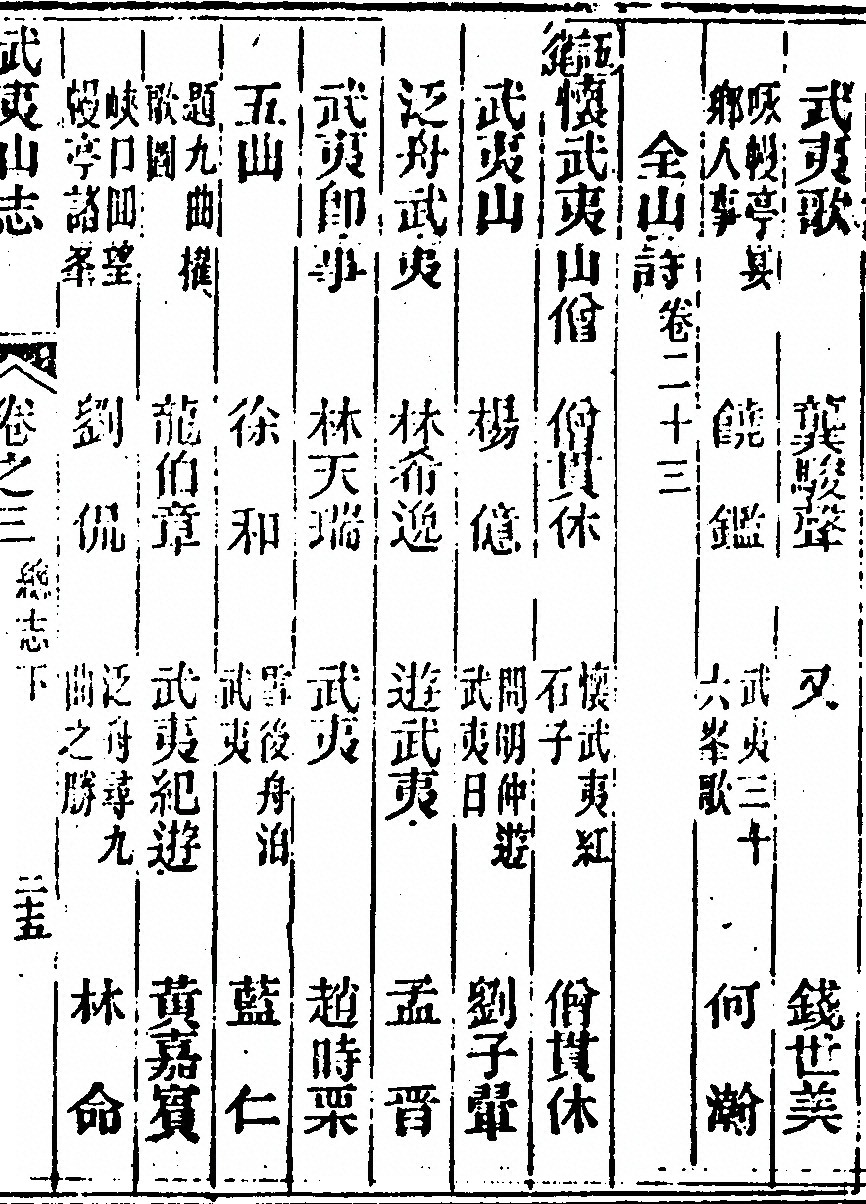 武夷歌　龔駿聲　又　錢世美
咏幔亭宴鄉人事　饒鑑　武夷三十六峯歌　何瀚
全山詩卷二十三
懷武夷山僧　僧貫休　懷武夷紅石子　僧貫休
武夷山　楊億　問明仲遊武夷日　劉子翬
泛舟武夷　林希逸　遊武夷　孟晉
武夷即事　林天瑞　武夷　趙時栗
五曲　徐和　霽後舟泊武夷　藍仁
題九曲櫂歌圖　龍伯章　武夷紀遊　黃嘉賓
峽口回望幔亭諸峯　劉侃　泛舟尋九曲之勝　林命
武夷山志　卷之三　總志下　二十五